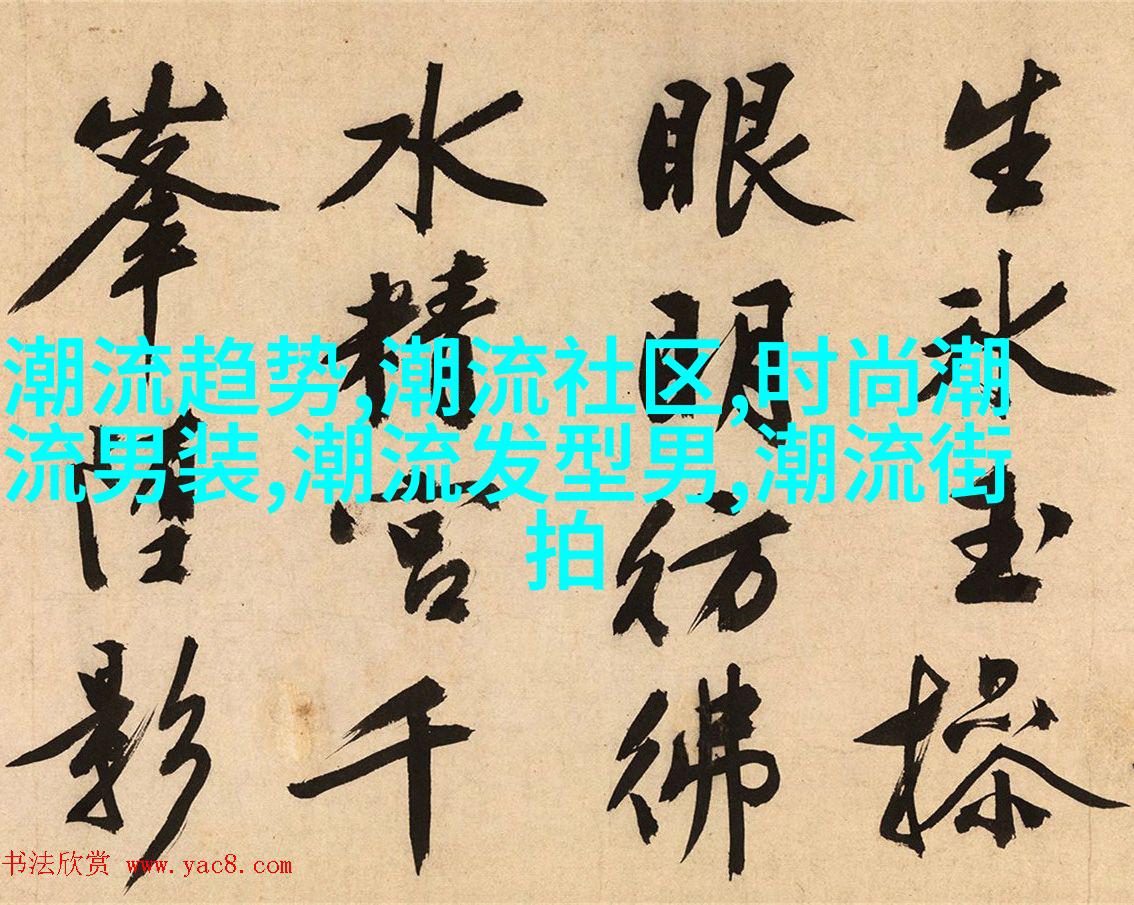 生冰玉操
眼明彷彿
水精宮千
峯影
潮流趋势,潮流社区,时尚潮
流男装,潮流发型男,潮流街
拍
书法欣赏 www.yac8.com